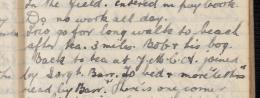 in the field. entered in pay book.
Do no work all day.
Trio go for long walk to beach
after tea. 3 miles. Bob & his bog.
Back to tea at Y.M.C.A. joined
by Sergt. Barr. To bed & more "Lotus"
read by Barr. There is one corner